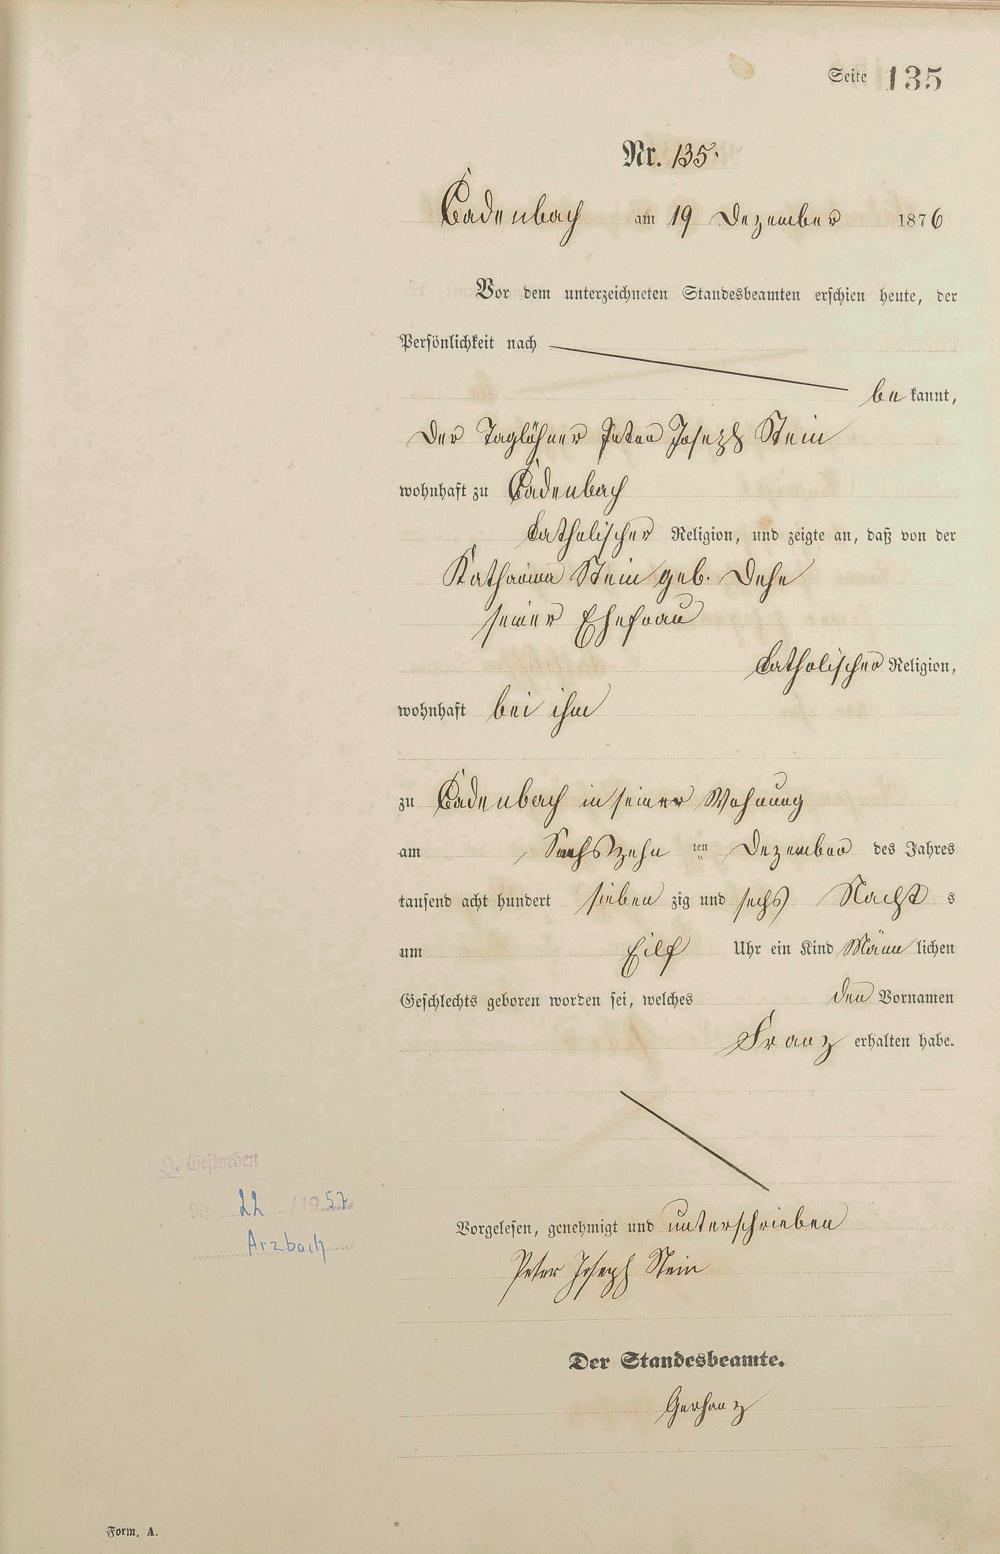 Seite 135
Nr. 135.
Cadenbach am 19 Dezember 1876
Vor dem unterzeichneten Standesbeamten erschien heute, der
Persönlichkeit nach
be kannt,
der Taglöhner Peter Joseph Stein
wohnhaft zu Cadenbach
katholischer Religion, und zeigte an, daß von der
Katharina Stein geb. Dehe
seiner Ehefrau
katholischer Religion,
wohnhaft bei ihm
zu Cadenbach in seiner Wohnung
am Sechszehn ten Dezember des Jahres
tausend acht hundert sieben zig und sechs Nacht s
um Eilf Uhr ein Kind Männ lichen
Geschlechts geboren worden sei, welches den Vornamen
Franz erhalten habe.
Gestorben
Nr. 22 / 1957
Arzbach
Vorgelesen, genehmigt und unterschrieben
Peter Joseph Stein
Der Standesbeamte.
Gerhanz
Form. A.